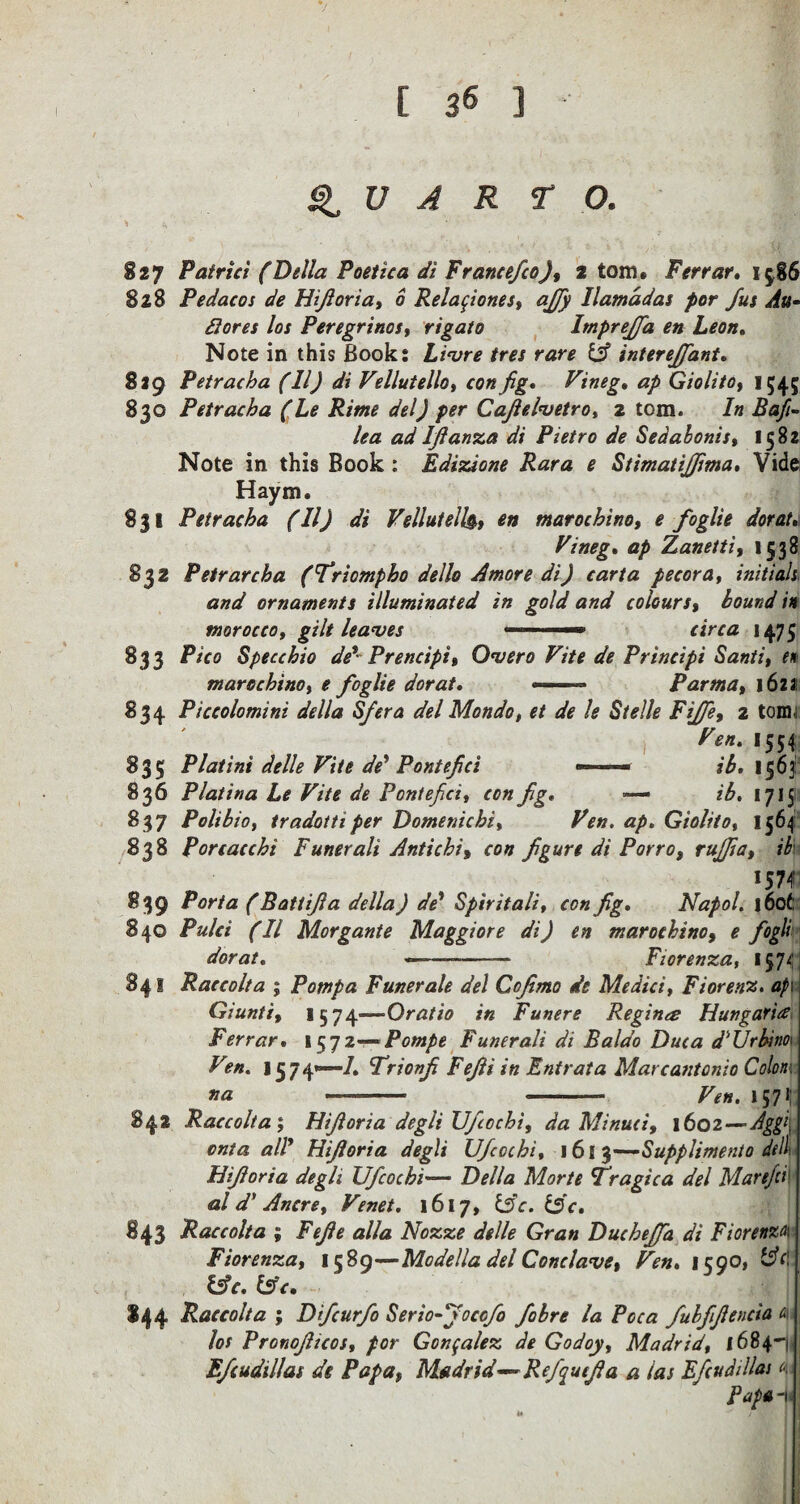 [ 36 ]
QUARTO.
827 Patrici (Della Poetica di Francesco), 2 tom. Ferrar. 1586
828 Pedacos de Historia, ô Relaçiones, assy llamádas por sus Au-
ctores los Peregrinos, rigato Impressa en Leon.
Note in this Book: Livre tres rare & interessant.
829 Petracha (Il) di Vellutello, con fig. Vineg. ap Giolito, 1545
830 Petracha (Le Rime del) per Castelvetro, 2 tom. In Basi-
lea ad Istanza di Pietro de Sedabonis, 1582
Note in this Book: Edizione Rara e Stimatissima. Vide
Haym.
831 Petracha (Il) di Vellutello, en marochino, e foglie dorat.
Vineg. ap Zanetti, 1538
832 Petrarcha (Triompho dello Amore di) carta pecora, initials
and ornaments illuminated in gold and colours, bound in
morocco, gilt leaves —— circa 1475
833 Pico Specchio de' Prencipi, Overo Vite de Principi Santi, en
marochino, e foglie dorat. —— Parma, 1622
834 Piccolomini della Sfera del Mondo, et de le Stelle Fisse, 2 tom.
Ven. 1554
835 Platini delle Vite de' Pontefici —— ib. 1563
836 Platina Le Vite de Pontefici, con fig. — ib. 1715
837 Polibio, tradotti per Domenichi, Ven. ap. Giolito, 1564
838 Porcacchi Funerali Antichi, con figure di Porro, russia, ib
1574
839 Porta (Battista della) de' Spiritali, con fig. Napol. 1606
840 Pulci (Il Morgante Maggiore di) en marochino, e fogli
dorat. ——— Fiorenza, 1574
841 Raccolta ; Pompa Funerale del Cosimo de Medici, Fiorenz. ap
Giunti, 1574—Oratio in Funere Reginæ Hungariæ
Ferrar. 1572—Pompe Funerali di Baldo Duca d'Urbino
Ven. 1574—I. Trionfi Festi in Entrata Marcantonio Colon
na —— —— Ven. 1571
842 Raccolta; Historia degli Uscochi, da Minuci, 1602—Aggi
onta all' Historia degli Uscochi, 1613—Supplimento dell
Historia degli Uscochi— Della Morte Tragica del Maresci
al d' Ancre, Venet. 1617, &c. &c.
843 Raccolta ; Feste alla Nozze delle Gran Duchessa di Fiorenza
Fiorenza, 1589—Modella del Conclave, Ven. 1590, &c
&c. &c.
844 Raccolta ; Discurso Serio-Jocoso sobre la Poca subsistencia
los Pronosticos, por Gonçalez de Godoy, Madrid, 1684—
Escudillas de Papa, Madrid—Resquesta a las Escudillas
Papa—